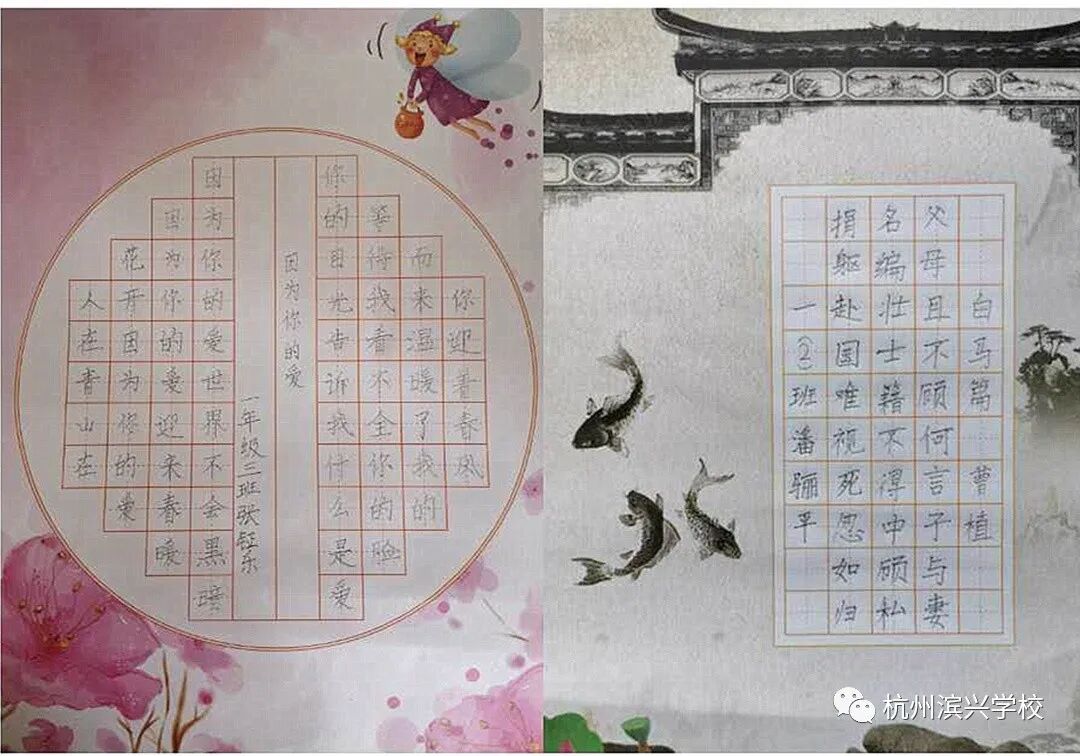 你迎着春风
而来温暖了我的
等待我看不全你的脸
你的目光告诉我付么是爱
因为你的爱
一年级三班张钰乐
因为你的爱世界不会黑暗
因为你的爱迎来春暖
花开因为你的爱
人在青山在
白马篇 曹植
父母且不顾何言子与妻
名编壮士籍不得中顾私
捐躯赴国唯视死忽如归
一②班潘骊平
杭州滨兴学校